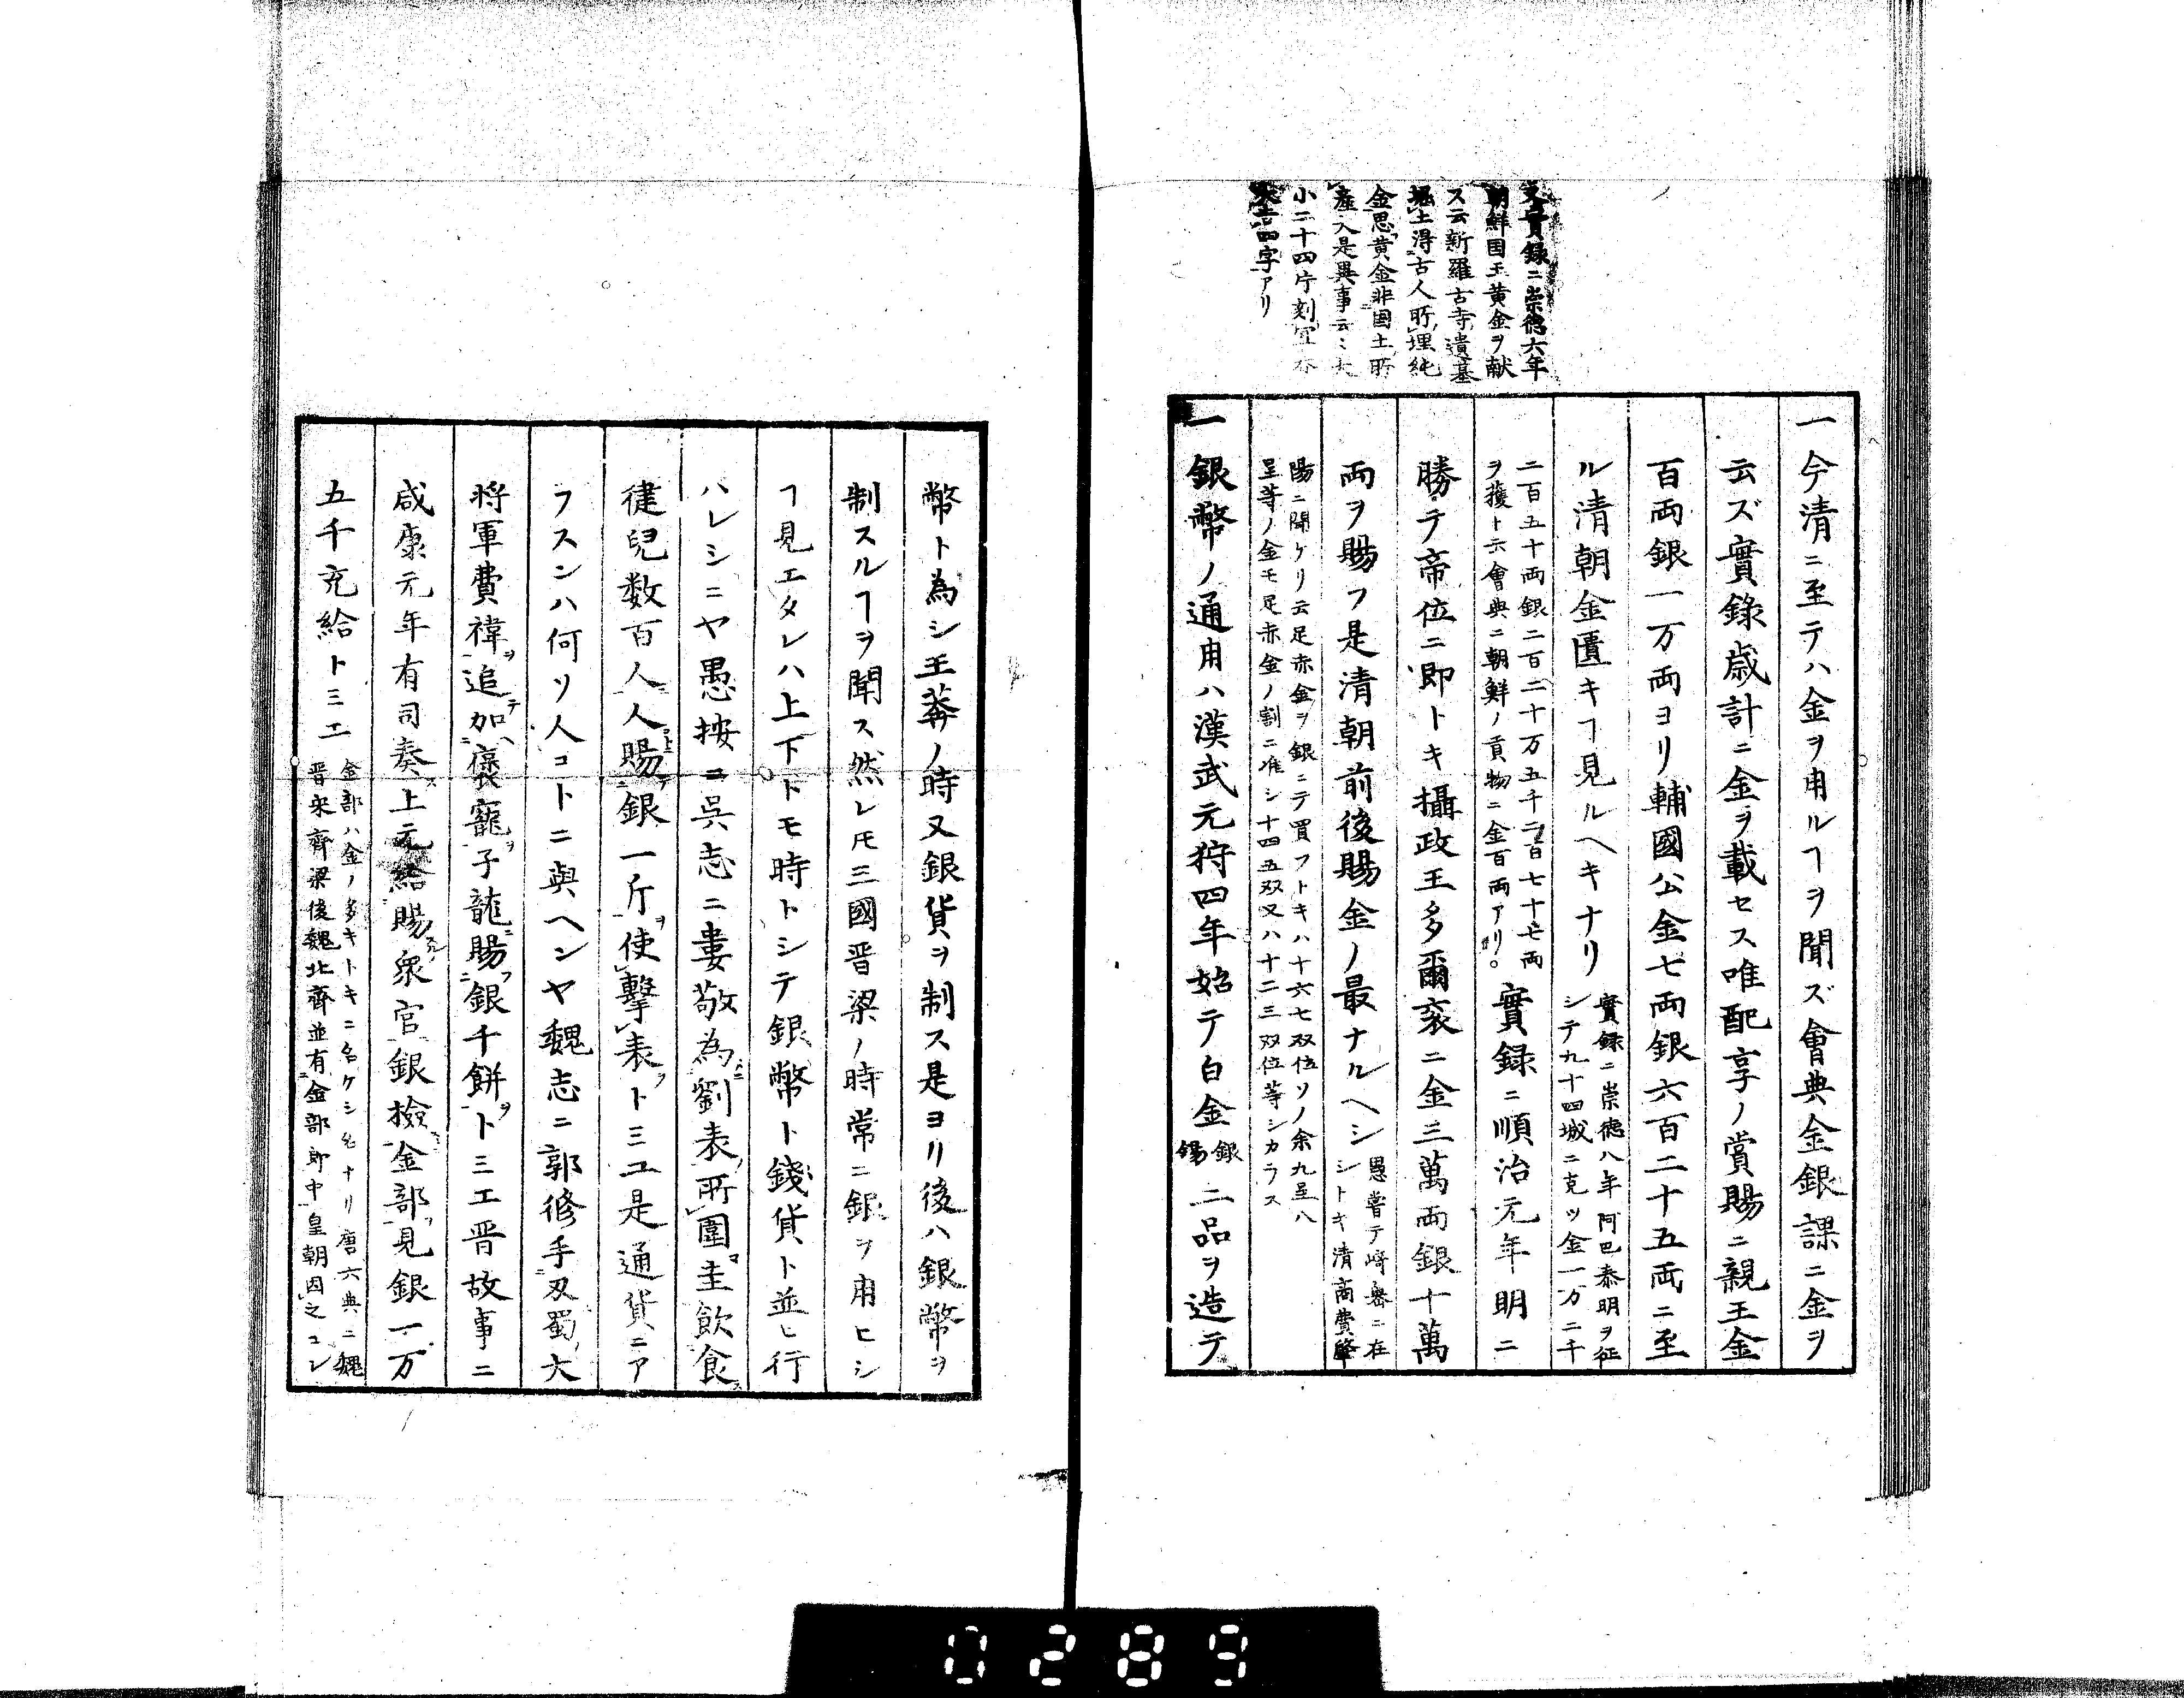 文實録ニ崇徳六年
朝鮮国王黄金ヲ献
ス云新羅古寺遺基
掘土得古人所埋純
金思黄金非国土所
産又是異事云〻大
小二十四片刻宜
四字アリ
一今清ニ至テハ金ヲ用ルヿヲ聞ズ會典金銀課ニ金ヲ
云ズ實録歳計ニ金ヲ載セス唯配享ノ賞賜ニ親王金
百両銀一万両ヨリ輔國公金七両銀六百二十五両ニ至
ル清朝金匱キヿ見ルヘキナリ
實録ニ崇徳八年阿巴泰明ヲ征
シテ九十四城ニ克ツ金一万二千
二百五十両銀二百二十万五千二百七十七両
ヲ獲ト云會典ニ朝鮮ノ貢物ニ金百両アリ。
實録ニ順治元年明ニ
勝テ帝位ニ即トキ攝政王多爾衮ニ金三萬両銀十萬
両ヲ賜フ是清朝前後賜金ノ最ナルヘシ
愚嘗テ崎嶴ニ在
シトキ清商費肇
陽ニ聞ケリ云足赤金ヲ銀ニテ買フトキハ十六七双位ソノ余九呈八
呈等ノ金モ足赤金ノ割ニ准シ十四五双又ハ十二三双位等シカラス
一銀幣ノ通用ハ漢武元狩四年始テ白金
銀
錫
二品ヲ造テ
幣ト為シ王莽ノ時又銀貨ヲ制ス是ヨリ後ハ銀幣ヲ
制スルヿヲ聞ス然レ𪜈三國晋梁ノ時常ニ銀ヲ用ヒシ
ヿ見エタレハ上下トモ時トシテ銀幣ト錢貨ト並ヒ行
ハレシニヤ愚按ヨ呉志ニ婁敬為劉表所圍圭飲食
健兒数百人人賜銀一斤使擊表トミユ是通貨ニア
フスンハ何ソ人コトニ與ヘンヤ魏志ニ郭脩手刄蜀大
將軍費禕追加褒寵子龍賜銀千餅トミエ晋故事ニ
咸康元年有司奏上元給賜衆官銀檢金部見銀一万
五千充給トミエ
金部ハ金ノ多キトキニ名ケシ也ナリ唐六典ニ魏
晋宋齊梁後魏北齊並有金部郎中皇朝因之コレ
0289